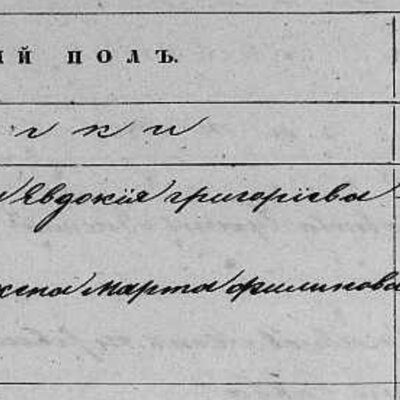 ІЙ ПОЛЪ.
г к и
Явдокія григоріева
жена марта филипова